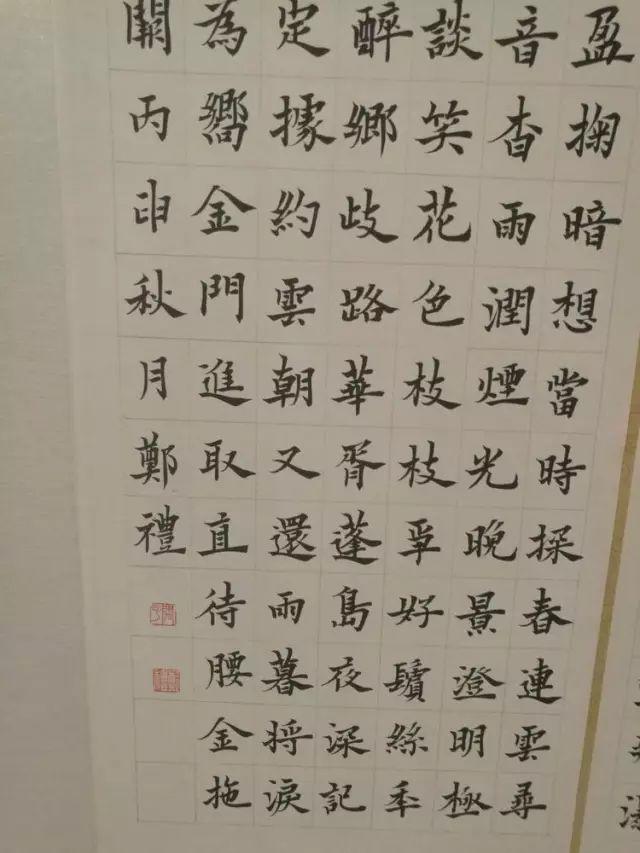 盈掬暗想當時探春連雲尋
音杳雨潤煙光晚景澄明極
談笑花色枝枝爭好鬢絲年
醉鄉歧路華胥蓬島夜深記
定據約雲朝又還雨暮將淚
為嚮金門進取直待腰金拖
關丙申秋月鄭禮